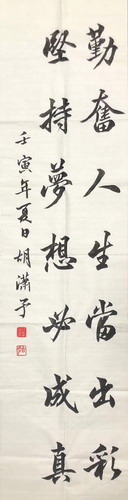 勤奮人生當出彩
堅持夢想必成真
壬寅年夏日胡瀟予